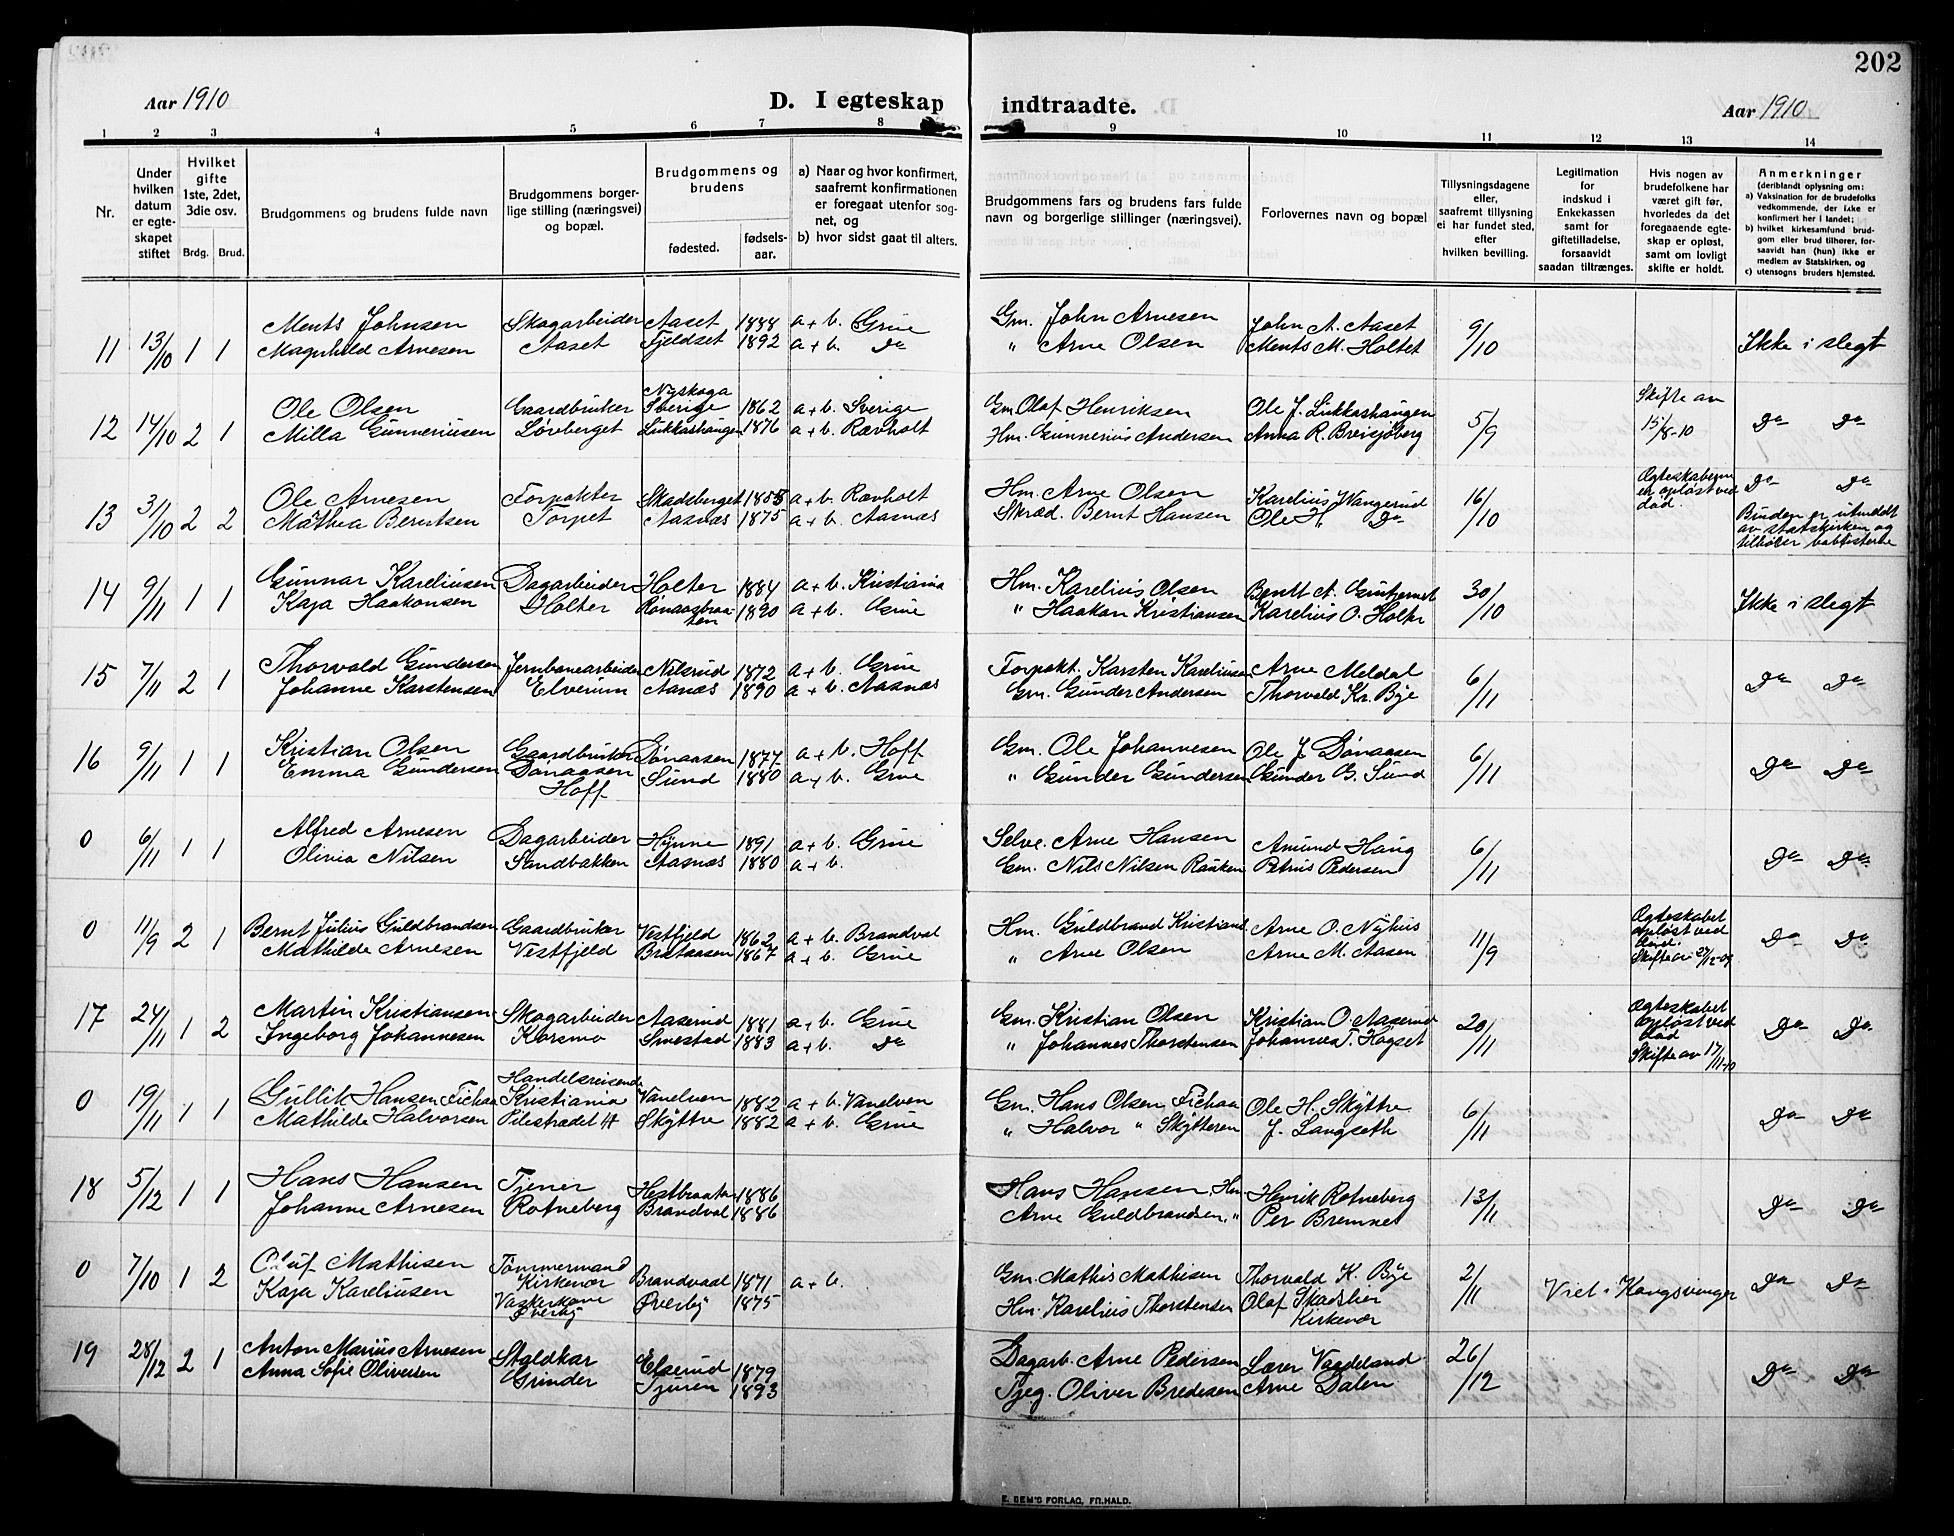 202
Aar 1910
D. I egteskap indtraadte.
Aar 1910
1 2 3 4 5 6 7 8 9 10 11 12 13 14
Nr.
Under hvilken datum er egteskapet stiftet
Hvilket gifte 1ste, 2det, 3die osv.
Brdg. Brud.
Brudgommens og brudens fulde navn
Brudgommens borgerlige stilling (næringsvei) og bopæl.
Brudgommens og brudens
fødested.
fødselsaar.
a) Naar og hvor konfirmert, saafremt konfirmationen er foregaat utenfor sognet, og
b) hvor sidst gaat til alters.
Brudgommens fars og brudens fars fulde navn og borgerlige stillinger (næringsvei).
Forlovernes navn og bopæl
Tillysningsdagene eller, saafremt tillysning ei har fundet sted, efter hvilken bevilling.
Legitimation for indskud i Enkekassen samt for giftetilladelse, forsaavidt saadan tiltrænges.
Hvis nogen av brudefolkene har været gift før, hvorledes da det foregaaende egteskap er opløst, samt om lovligt skifte er holdt.
Anmerkninger (deriblandt oplysning om:
a) Vaksination for de brudefolks vedkommende, der ikke er konfirmert her i landet;
b) hvilket kirkesamfund brudgom eller brud tilhører, forsaavidt han (hun) ikke er medlem av Statskirken, og
c) utensogns bruders hjemsted.
11 13/10 1 1 Ments Johnsen Skogarbeider Aaset 1888 a + b. Grue Gm. John Arnesen John A. Aaset 9/10 Ikke i slegt
Magnhild Arnesen Aaset Fjeldset 1892 a + b. do " Arne Olsen Ments M. Holtet
12 14/10 2 1 Ole Olsen Gaardbruker Nyskoga Sverige 1862 a + b. Sverige Gm. Olof Henriksen Ole J. Lukkashaugen 5/9 Skifte av 15/8-10 do do
Milla Gunneriusen Løvberget Lukkashaugen 1876 a + b. Rævholt Hm. Gunnerius Andersen Anna R. Breisjøberg
13 31/10 2 2 Ole Arnesen Torpakter Skadsberget 1855 a + b. Rævholt Hm. Arne Olsen Karelius Wangerud 16/10 Ægteskaberne er opløst ved død. do do
Mathea Berntsen Torpet Aasnæs 1875 a + b. Aasnæs Skræd. Bernt Hansen Ole H. do Bruden er utmeldt av statskirken og tilhører babtisterne
14 9/11 1 1 Gunnar Kareliusen Dagarbeider Holter 1884 a + b. Kristiania Hm. Karelius Olsen 30/10 Ikke i slegt
Kaja Haakonsen Holter 1890 a + b. Grue " Haakon Kristiansen Karelius O. Holter
15 7/11 2 1 Thorvald Gundersen Jernbanearbeider Nilsrud 1872 a + b. Grue Torpakt. Karsten Kareliusen Arne Meldal 6/11 do do
Johanne Karstensen Elverum Aasnæs 1890 a + b. Aasnæs Gm. Gunder Andersen Thorvald Kr. Bye
16 9/11 1 1 Kristian Olsen Gaardbruker Dønaasen 1877 a + b. Hoff Gm. Ole Johannesen Ole J. Dønaasen 6/11 do do
Emma Gundersen Dønaasen Hoff Sund 1880 a + b. Grue " Gunder Gundersen Gunder G. Sund
0 6/11 1 1 Alfred Arnesen Dagarbeider Hynne 1891 a + b. Grue Selve. Arne Hansen Amund Haug 6/11 do do
Olivia Nilsen Sandbakken Aasnæs 1880 a + b. Gm. Nils Nilsen Petrus Pedersen
0 11/9 2 1 Bernt Julius Guldbrandsen Gaardbruker Vestfjeld 1862 a + b. Brandval Hm. Guldbrand Kristians. Arne O. Nyhus 11/9 Ægteskabet opløst ved død. do do
Mathilde Arnesen Vestfjeld Brataasen 1867 a + b. Grue " Arne Olsen Arne M. Aasen
17 24/11 1 2 Martin Kristiansen Skogarbeider Aaserud 1881 a + b. Grue Gm. Kristian Olsen Kristian O. Aaserud 20/11 Ægteskabet opløst ved død Skifte av 17/11-10 do do
Ingeborg Johannesen Korsmo Smestad 1883 a + b. do " Johannes Thorstensen Johannes T. Hagset
0 19/11 1 1 Gullik Hansen Fichaa Handelsreisende Kristiania Vanelven 1882 a + b. Vanelven Gm. Hans Olsen Fichaa Ole H. Skyttre 6/11 do do
Mathilde Halvorsen Pilestrædet Skyttre 1882 a + b. Grue " Halvor " Skytteren J. Langseth
18 5/12 1 1 Hans Hansen Tjener Hestbraaten 1886 Hans Hansen, Hm Henrik Rotneberg 13/11 do do
Johanne Arnesen Rotneberg Brandval 1886 Arne Guldbrandsen, " Per Bremnes
0 7/10 1 2 Oluf Mathisen Tømmermand Kirkenær Brandvaal 1871 a + b. Gm. Mathis Mathisen Thorvald K. Bye 2/11 Viet i Kongsvinger do do
Kaja Kareliusen Vaskerkone Øverby Øverby 1875 Hm. Karelius Thorstensen Olaf Skadsher Kirkenær
19 28/12 2 1 Anton Marius Arnesen Staldkar 1879 Dagarb. Arne Pedersen Lærer Vaadeland 26/12 do do
Anna Sofie Oliversen Grinder Tjuren 1893 Tjeg. Oliver Bredesen Arne Dalen
E. SEM'S FORLAG, FR.HALD.